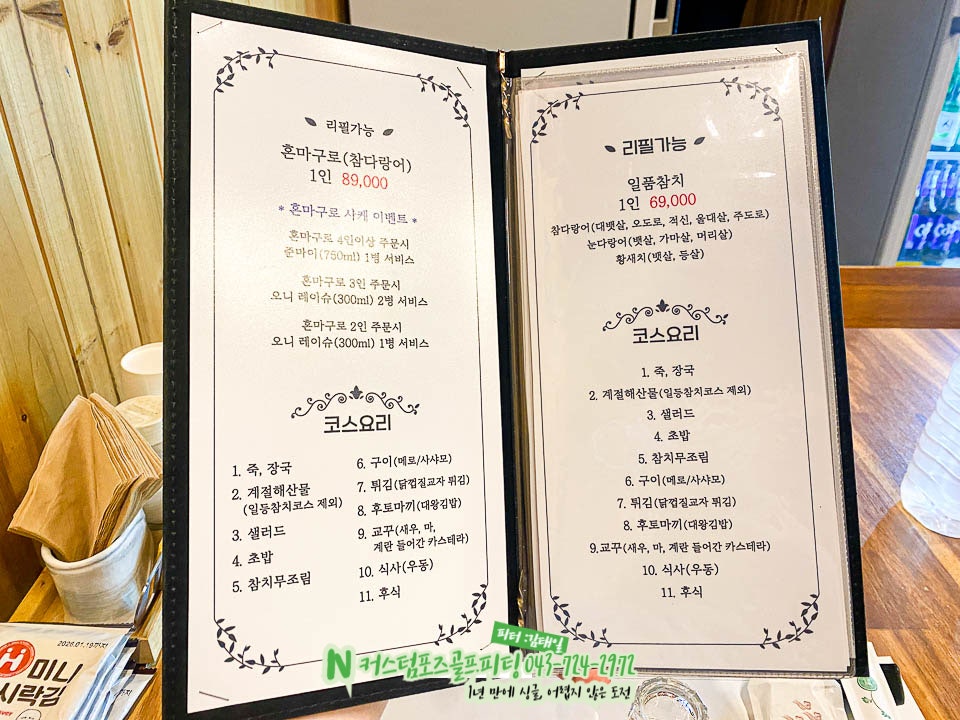 리필가능
혼마구로(참다랑어)
1인 89,000
* 혼마구로 사케 이벤트 *
혼마구로 4인이상 주문시
준마이(750ml) 1병 서비스
혼마구로 3인 주문시
오니 레이슈(300ml) 2병 서비스
혼마구로 2인 주문시
오니 레이슈(300ml) 1병 서비스
코스요리
1. 죽, 장국
2. 계절해산물
(일등참치코스 제외)
3. 샐러드
4. 초밥
5. 참치무조림
6. 구이(메로/사샤모)
7. 튀김(닭껍질교자 튀김)
8. 후토마끼(대왕김밥)
9. 교꾸(새우, 마,
계란 들어간 카스테라)
10. 식사(우동)
11. 후식
리필가능
일품참치
1인 69,000
참다랑어(대뱃살, 오도로, 적신, 울대살, 주도로)
눈다랑어(뱃살, 가마살, 머리살)
황새치(뱃살, 등살)
코스요리
1. 죽, 장국
2. 계절해산물(일등참치코스 제외)
3. 샐러드
4. 초밥
5. 참치무조림
6. 구이(메로/사샤모)
7. 튀김(닭껍질교자 튀김)
8. 후토마끼(대왕김밥)
9.교꾸(새우, 마, 계란 들어간 카스테라)
10. 식사(우동)
11. 후식
2026.01.19까지
미니
시락김
피터 :김태일
N 커스텀포즈골프피팅 043-724-2972
1년 만에 싱글, 어렵지 않은 도전